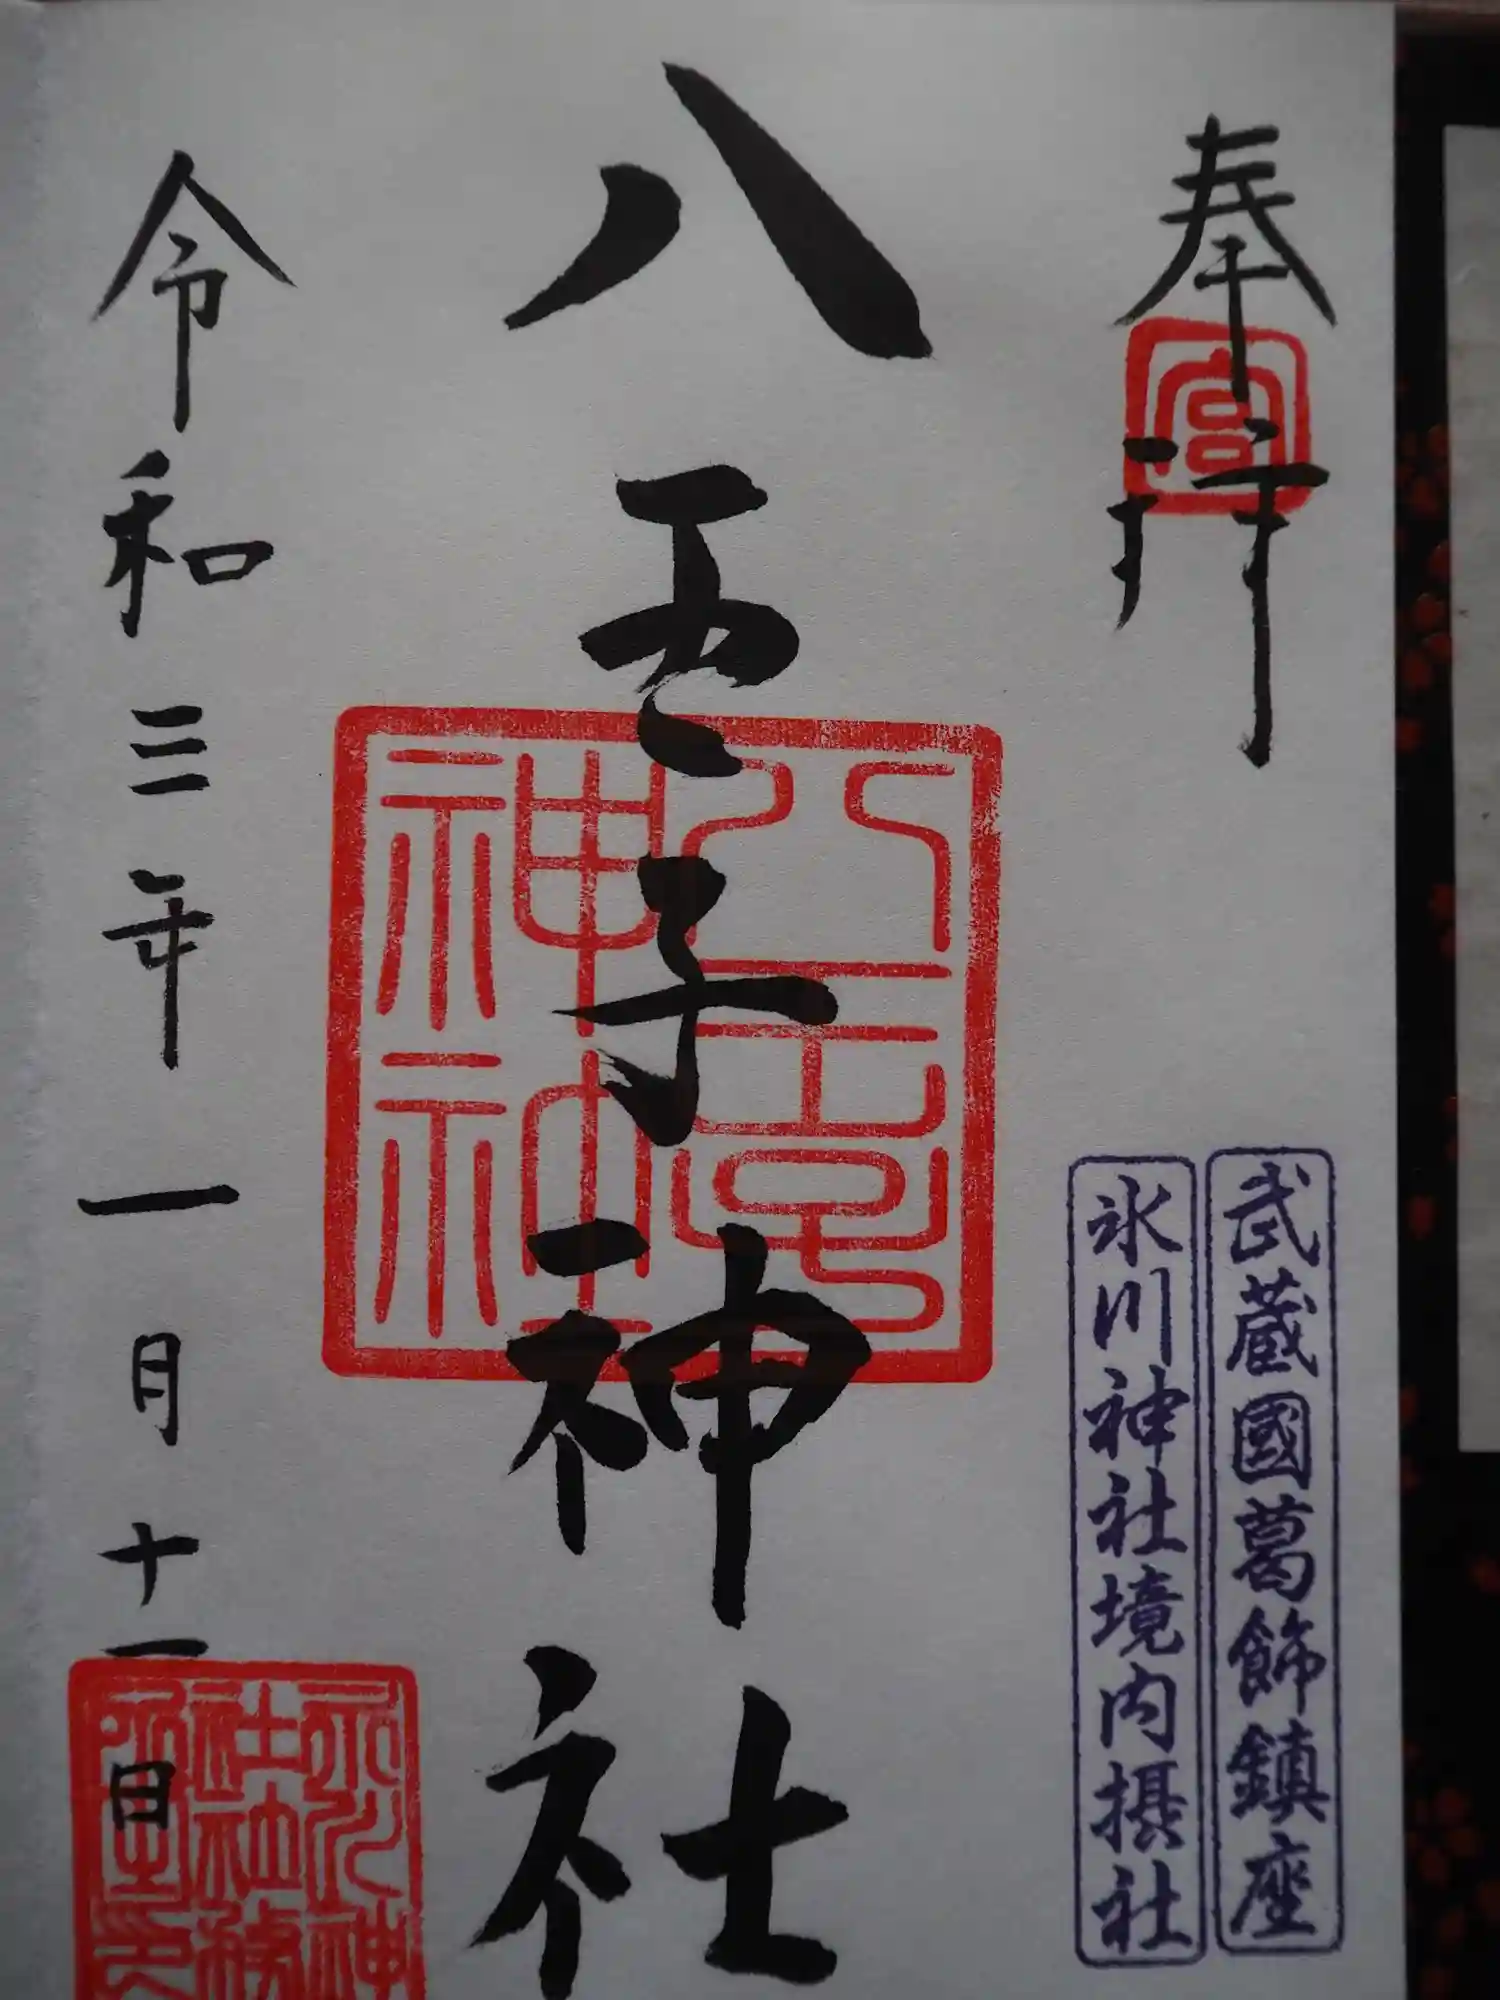 奉拝
宮
武蔵國葛飾鎮座
氷川神社境内摂社
八王子神社
八王子
神社
令和三年一月十一日
氷川神
社社務
所之印